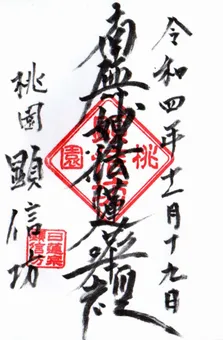 令和四年十一月十九日
南無妙法蓮華経
桃園 顕信坊
桃園
日蓮宗
顕信坊